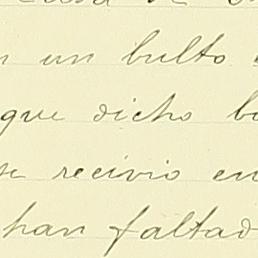 un bulto
que dicho
se recivio en
han faltad